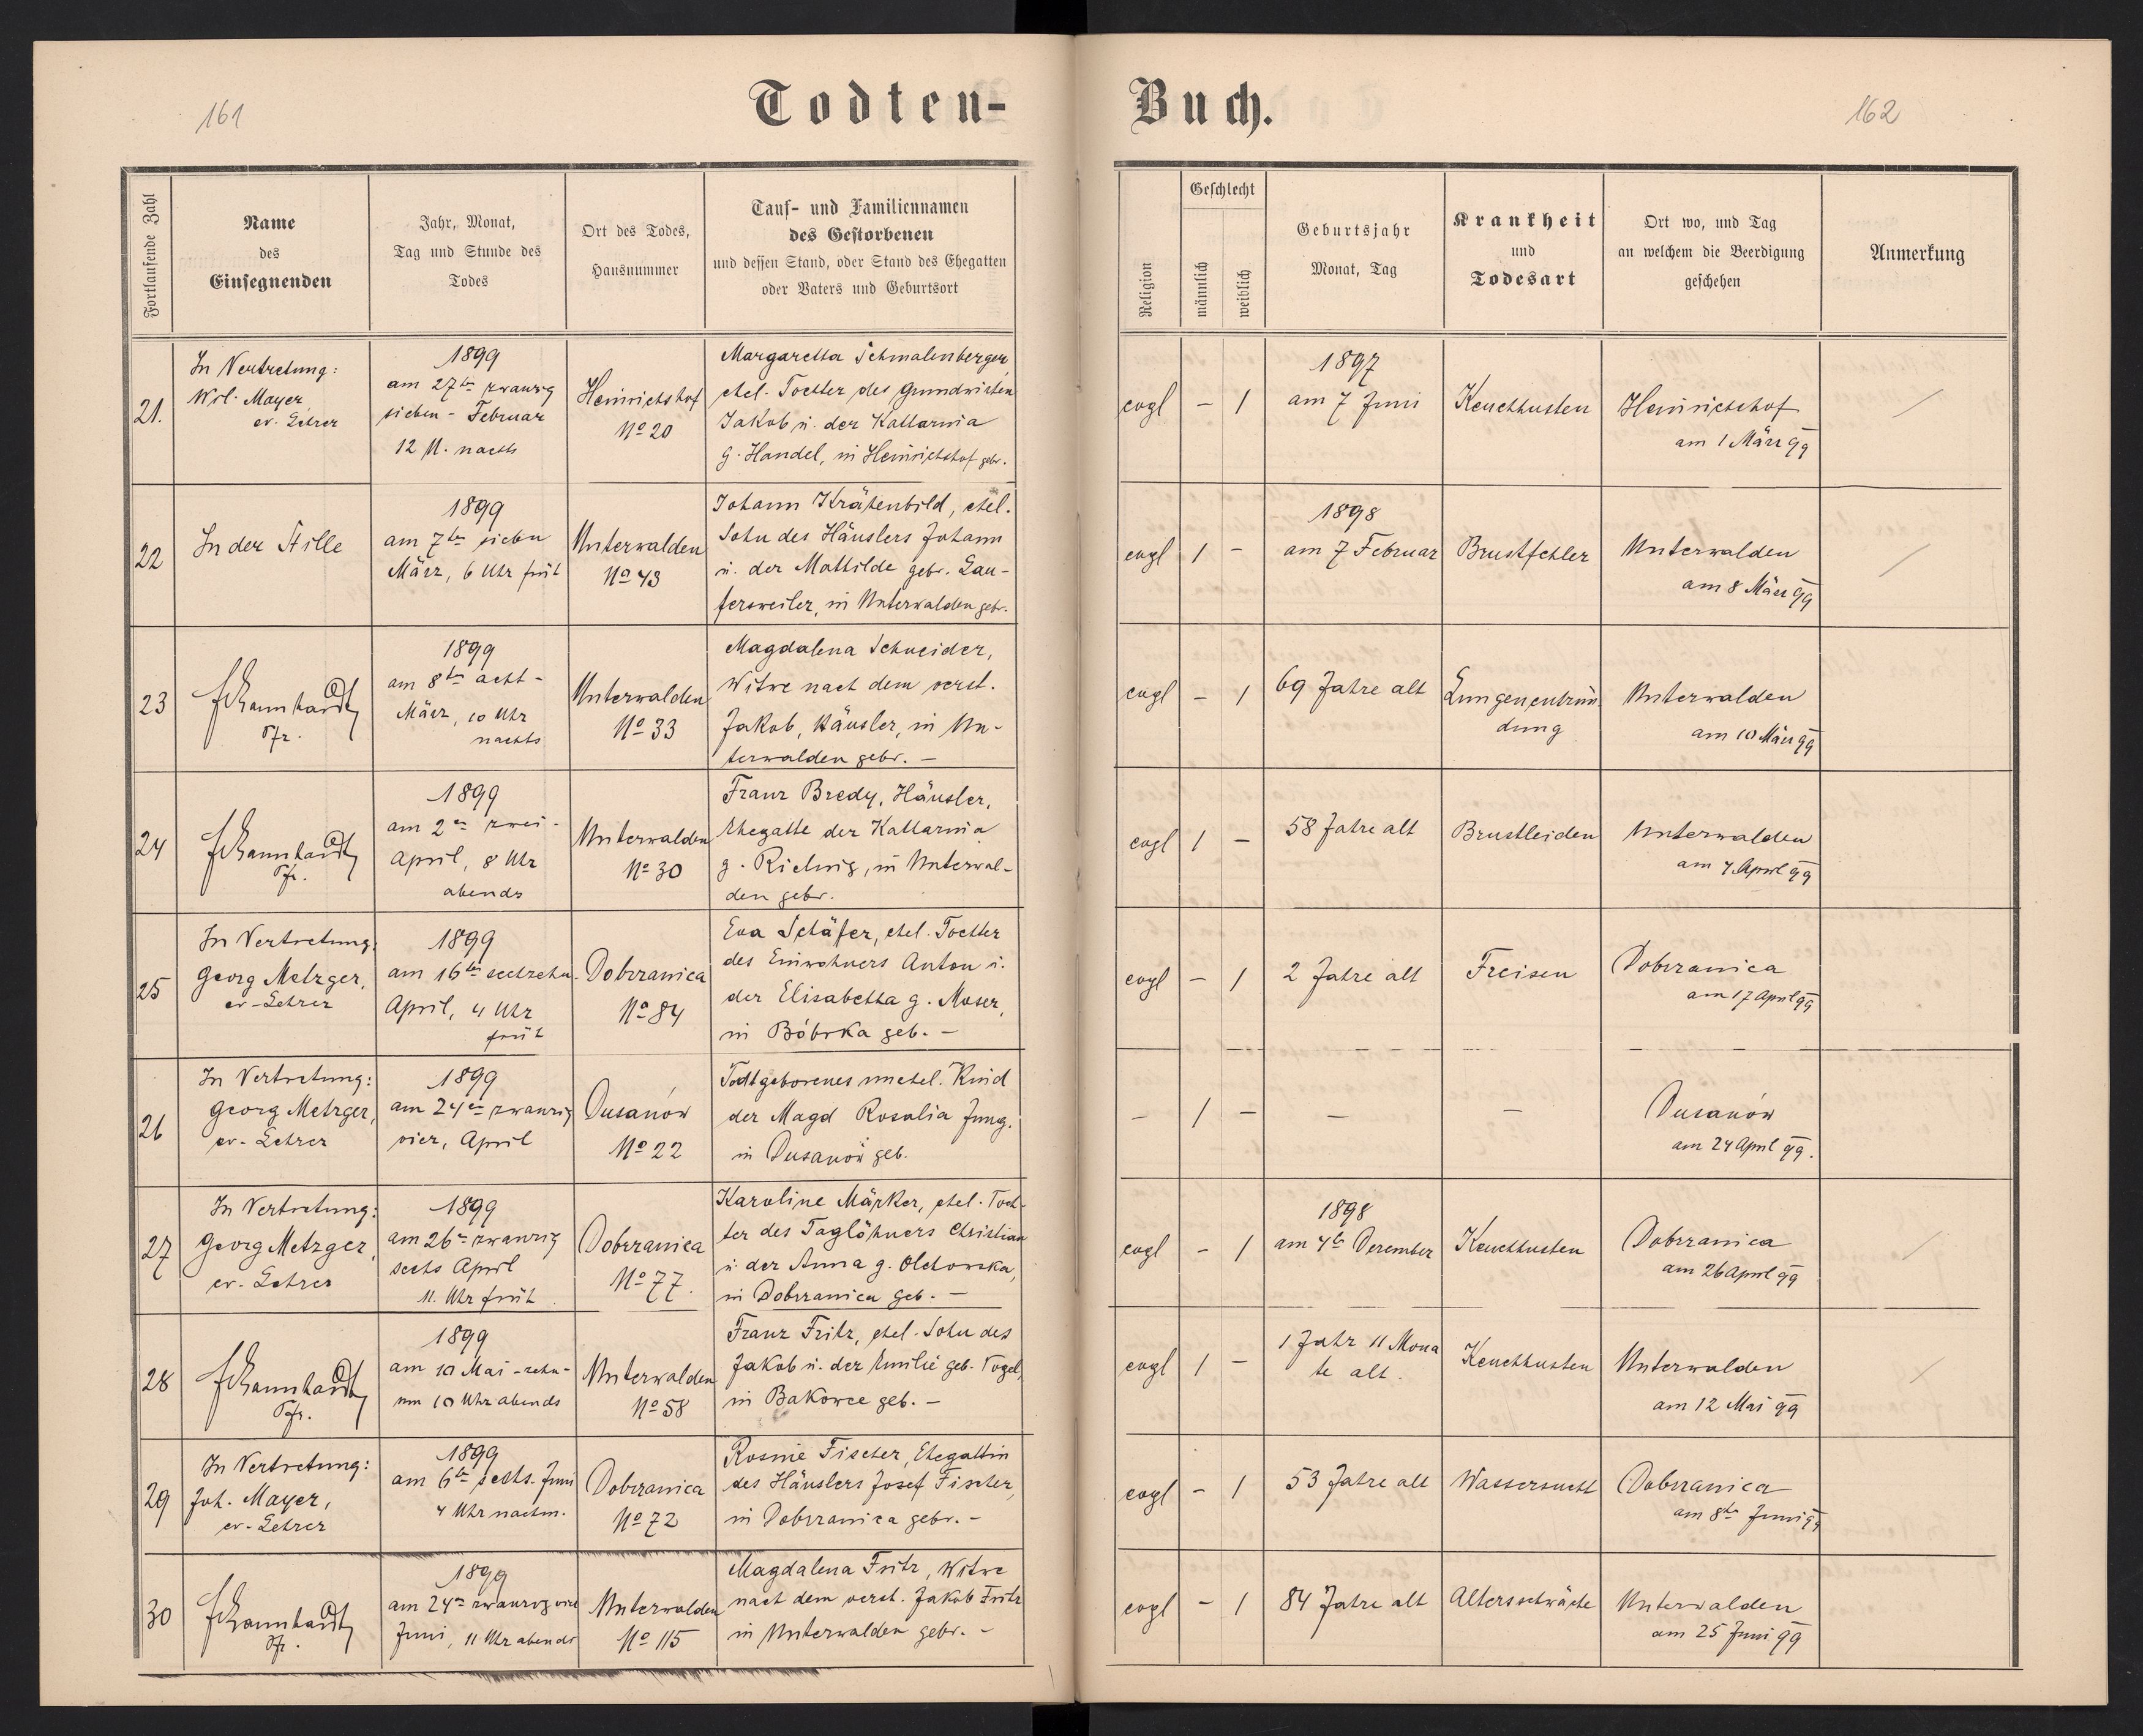 161
Todten-
Buch.
162
Fortlaufende Zahl
Name
des
Einsegnenden
Jahr, Monat,
Tag und Stunde des
Todes
Ort des Todes,
Hausnummer
Tauf- und Familiennamen
des Gestorbenen
und dessen Stand, oder Stand des Ehegatten
oder Vaters und Geburtsort
Religion
Geschlecht
männlich
weiblich
Geburtsjahr
Monat, Tag
Krankheit
und
Todesart
Ort wo, und Tag
an welchem die Beerdigung
geschehen
Anmerkung
21.
In Vertretung:
Mayer
ev. Lehrer
1899
am 27ten zwanzig
sieben - Februar
12 U. nachts
Heinrichshof
No 20
Margaretha Schmalenberger,
ehel. Tochter des Grundwirten
Jakob u. der Katharina
g. Handel, in Heinrichshof geb.
evgl
-
1
1897
am 7 Juni
Keuchhusten
Heinrichshof
am 1 März 99
/
22
In der Stille
1899
am 7ten sieben
März, 6 Uhr früh
Unterwalden
No 43
Johann Krähenbild, ehel.
Sohn des Häuslers Johann
u. der Mathilde gebr. Lau-
fersweiler, in Unterwalden gebr.
evgl
1
-
1898
am 7 Februar
Brustfehler
Unterwalden
am 8 März 99
/
23
Pfr.
1899
am 8ten acht -
März, 10 Uhr
nachts
Unterwalden
No 33
Magdalena Schneider,
Witwe nach dem verst.
Jakob, Häusler, in Un-
terwalden gebr. -
evgl
-
1
69 Jahre alt
Lungenentzün
dung
Unterwalden
am 10 März 99
24
Pfr.
1899
am 2en zwei -
April, 8 Uhr
abends
Unterwalden
No 30
Franz Bredy, Häusler,
Ehegatte der Katharina
g. in Unterwal-
den gebr.
evgl
1
-
58 Jahre alt
Brustleiden
Unterwalden
am 4 April 99
25
In Vertretung:
Georg Metzger,
ev-Lehrer
1899
am 16ten sechzehn -
April, 4 Uhr
früh
Dobrzanica
No 84
Eva Schäfer, ehel. Tochter
des Einwohners Anton u.
der Elisabetha g. Moser,
in Bóbrka geb. -
evgl
-
1
2 Jahre alt
Freisen
Dobrzanica
am 17 April 99
26
In Vertretung:
Georg Metzger,
ev-Lehrer
1899
am 24en zwanzig
vier, April
Dusanów
No 22
Todtgeborenes unehel. Kind
der Magd Rosalia Jung.
in Dusanów geb.
-
1
-
-
-
Dusanów
am 24 April 99.
27
In Vertretung:
Georg Metzger,
ev-Lehrer
1899
am 26en zwanzig
sechs April
11. Uhr früh
Dobrzanica
No 77.
Karoline Märker, ehel. Toch-
ter des Taglöhners Christian
u. der Anna g. Olchowska,
in Dobrzanica geb. -
evgl
-
1
1898
am 4ten Dezember
Keuchhusten
Dobrzanica
am 26 April 99
/
28
Pfr.
1899
am 10 Mai - zehn -
um 10 Uhr abends
Unterwalden
No 58
Franz Fritz, ehel. Sohn des
Jakob u. der Emilie geb. Vogel,
in Bakowce geb. -
evgl
1
-
1 Jahr 11 Mona
te alt.
Keuchhusten
Unterwalden
am 12 Mai 99
/
29
In Vertretung:
Joh. Mayer,
ev-Lehrer
1899
am 6ten sechs. Juni
4 Uhr nachm.
Dobrzanica
No 72
Rosine Fischer, Ehegattin
des Häuslers Josef Fischer,
in Dobrzanica gebr. -
evgl
-
1
53 Jahre alt
Wassersucht
Dobrzanica
am 8ten Juni 99
30
Pfr.
1899
am 24en zwanzig vier
Juni, 11 Uhr abends
Unterwalden
No 115
Magdalena Fritz, Witwe
nach dem verst. Jakob Fritz
in Unterwalden gebr. -
evgl
-
1
84 Jahre alt
Altersschwäche
Unterwalden
am 25 Juni 99